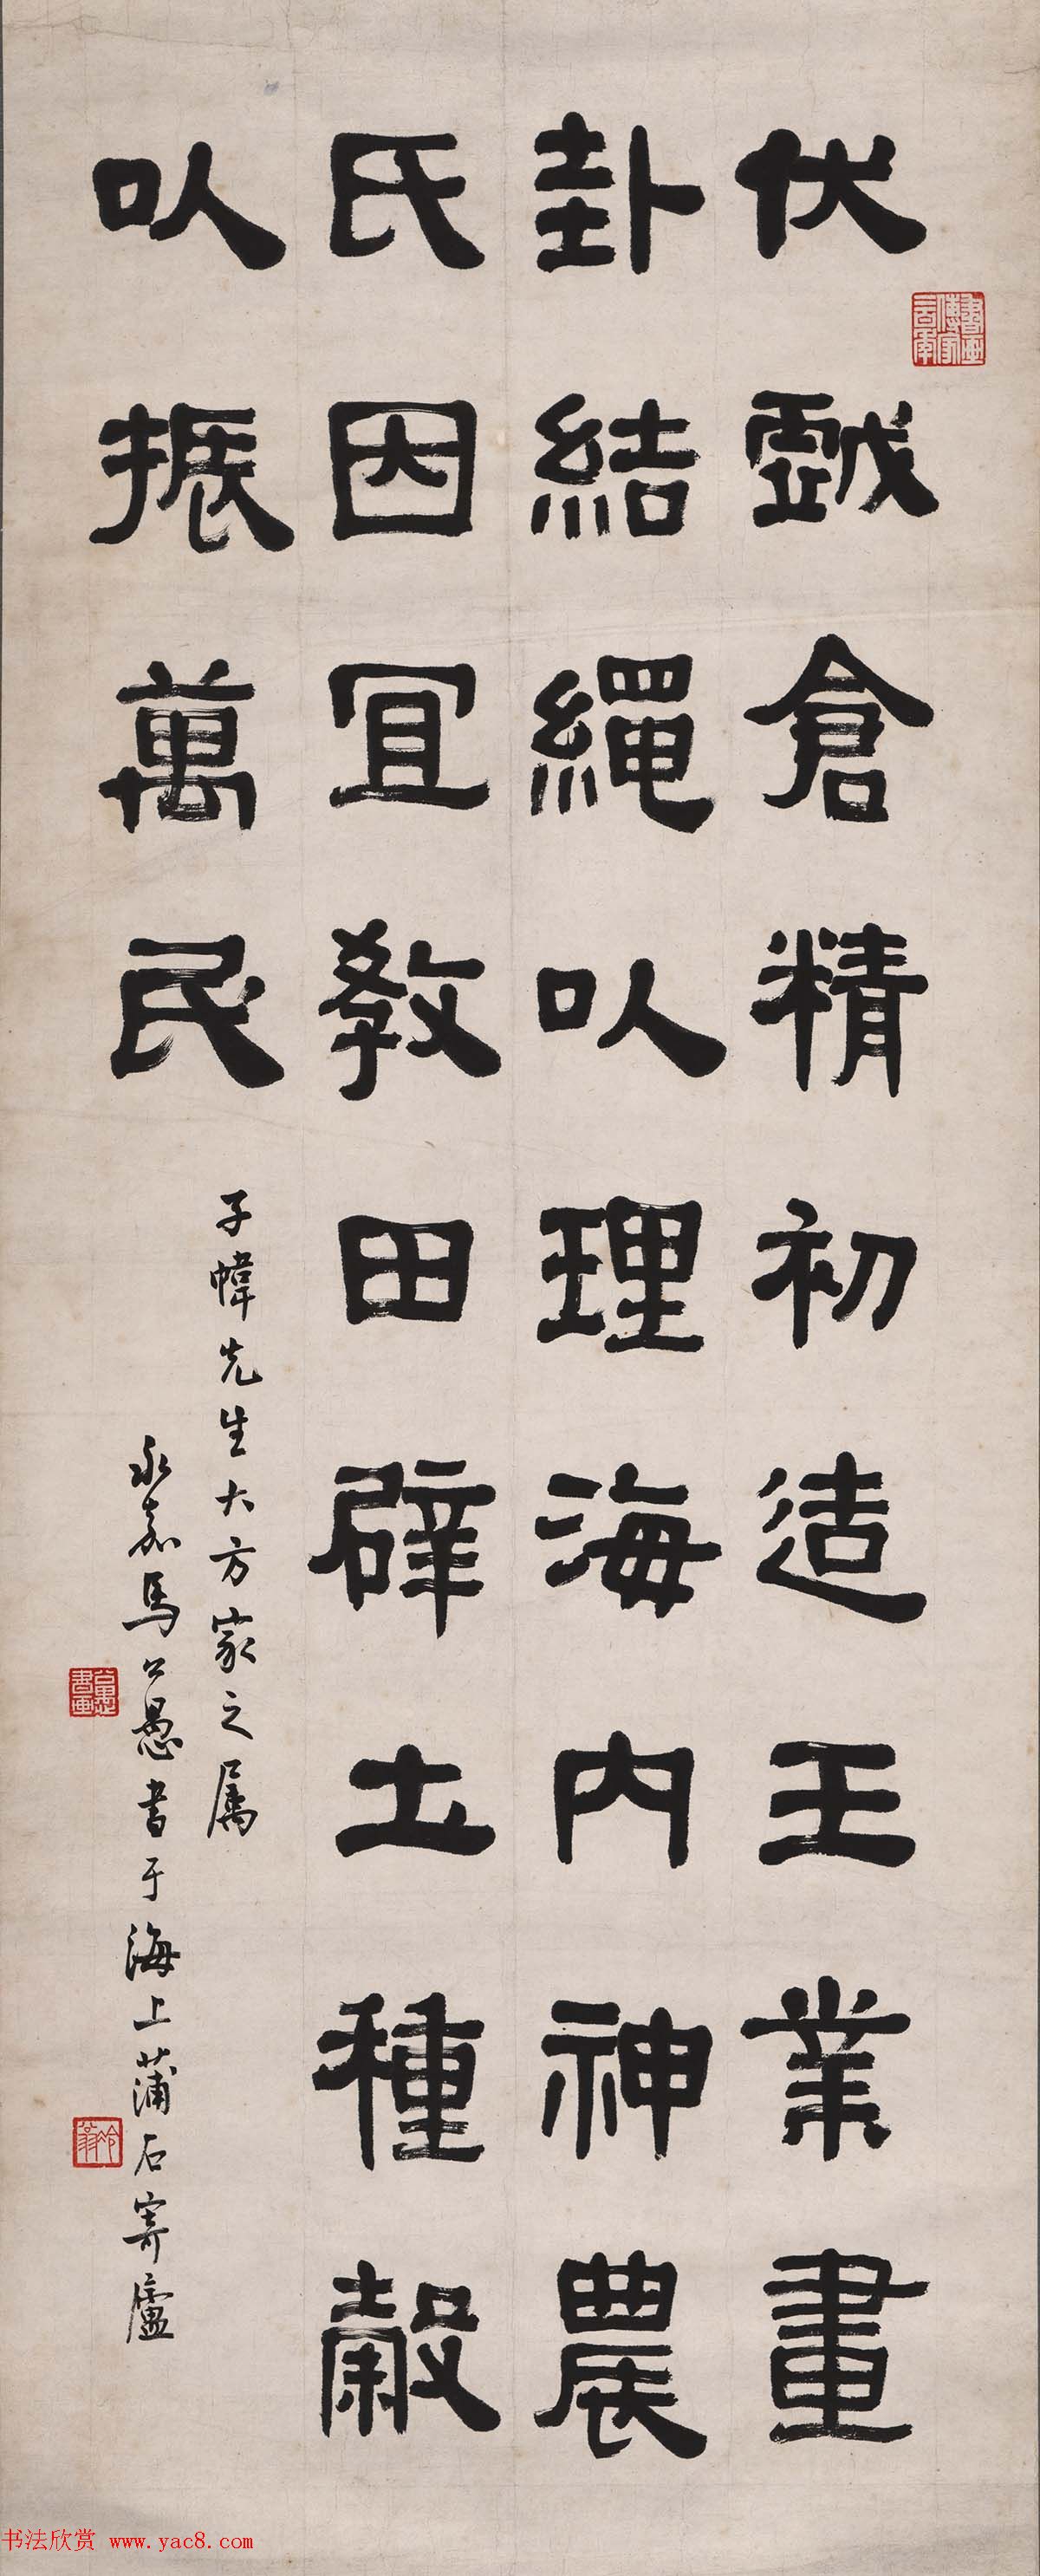 伏戲倉精初造王業畫
卦結繩以理海內神農
氏因宜教田辟土種穀
以振萬民
子幃先生大方家之屬
永嘉馬公愚書于海上蒲石寄廬
公愚書畫
冷翁
书法欣赏 www.yac8.com